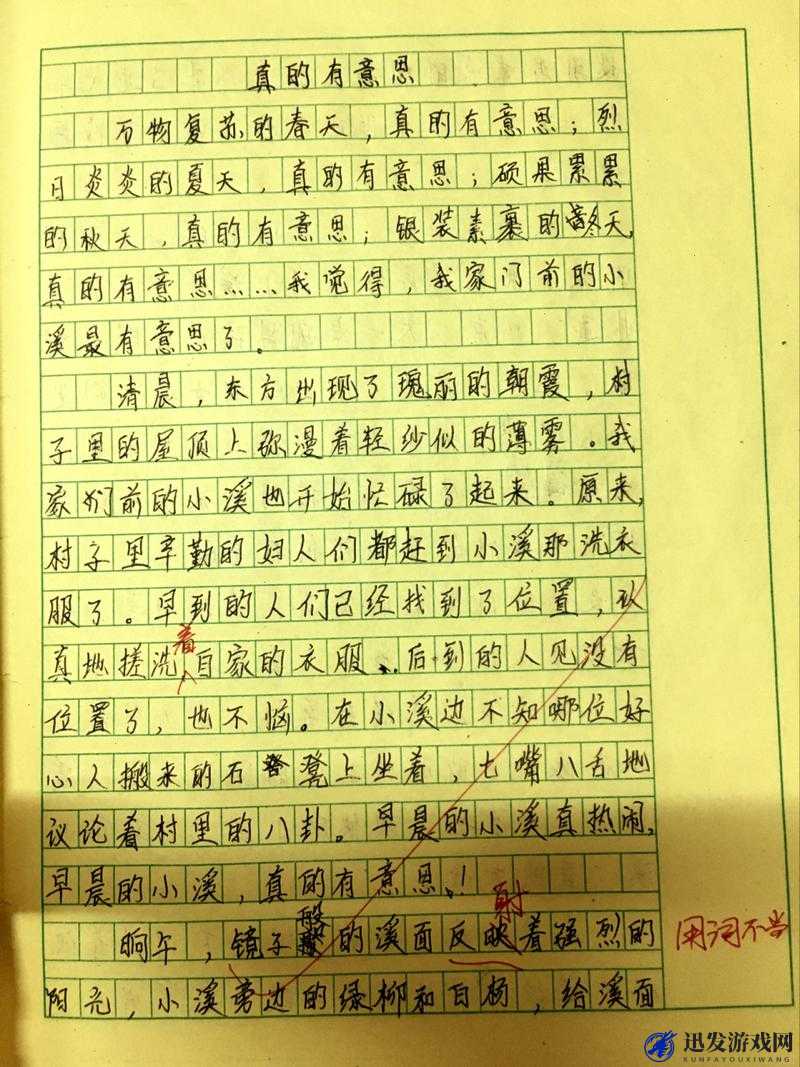 真的有意思
万物复苏的春天，真的有意思；烈
日炎炎的夏天，真的有意思；硕果累累
的秋天，真的有意思；银装素裹的冬天，
真的有意思……我觉得，我家门前的小
溪最有意思了。
清晨，东方出现了瑰丽的朝霞，村
子里的屋顶上弥漫着轻纱似的薄雾。我
家们前的小溪也开始忙碌了起来。原来，
村子里辛勤的妇人们都赶到小溪那洗衣
服了。早到的人们已经找到了位置，认
真地搓洗着自家的衣服、后到的人见没有
位置了，也不恼。在小溪边不知哪位好
心人搬来的石凳上坐着，七嘴八舌地
议论着村里的八卦。早晨的小溪真热闹，
早晨的小溪，真的有意思！
晌午，镜子般的溪面反映着强烈的
射
用词不当
阳光，小溪旁边的绿柳和白杨，给溪面
迅发游戏网
XUNFAYOUXIWANG